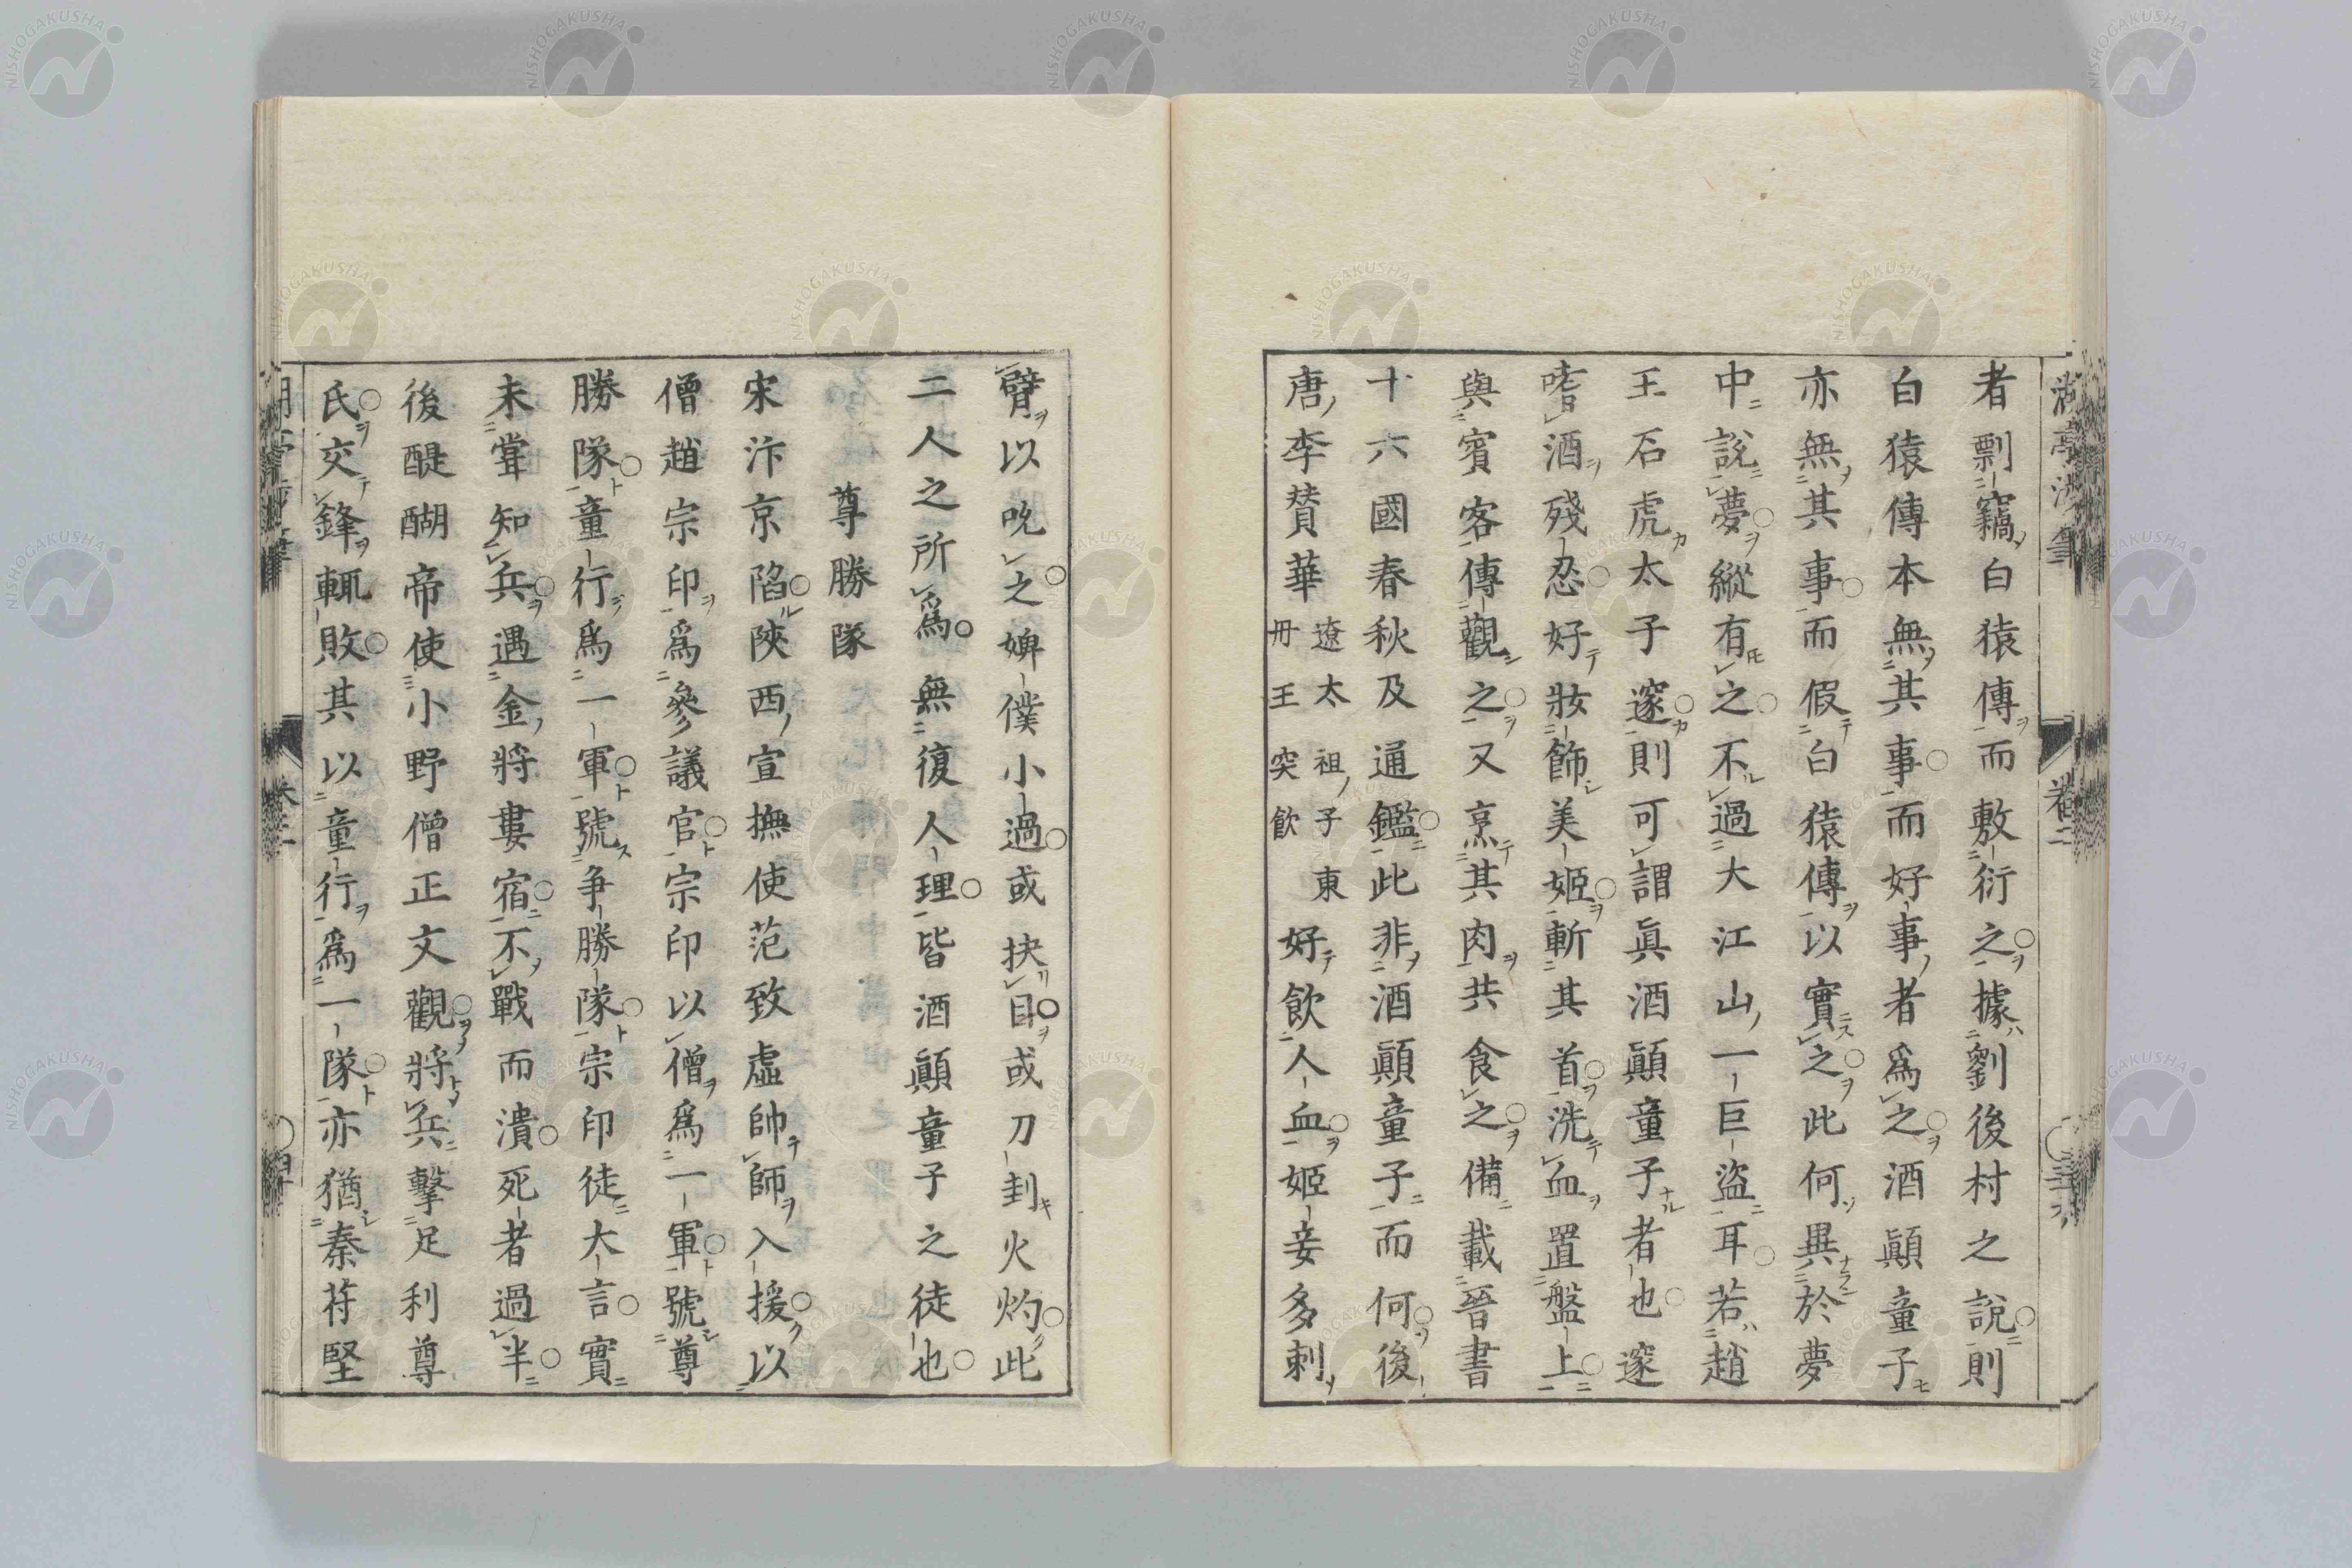 者剽竊白猿傳而敷衍之據劉後村之說則
白猿傳本無其事而好事者爲之酒顚童子
亦無其事而假白猿傳以實之此何異於夢
中說夢縱有之不過大江山一巨盜耳若趙
王石虎太子邃則可謂眞酒顚童子者也邃
嗜酒殘忍好妝飾美姬斬其首洗血置盤上
與賓客傳觀之又烹其肉共食之備載晉書
十六國春秋及通鑑此非酒顚童子而何後
唐李贊華遼太祖子東丹王突欲好飮人血姬妾多刺
臂以吮之婢僕小過或抉目或刀刲火灼此
二人之所爲無復人理皆酒顚童子之徒也
尊勝隊
宋汴京陷陝西宣撫使范致虛帥師入援以
僧趙宗印爲參議官宗印以僧爲一軍號尊
勝隊童行爲一軍號爭勝隊宗印徒大言實
未甞知兵遇金將婁宿不戰而潰死者過半
後醍醐帝使小野僧正文觀將兵擊足利尊
氏交鋒輒敗其以童行爲一隊亦猶秦苻堅